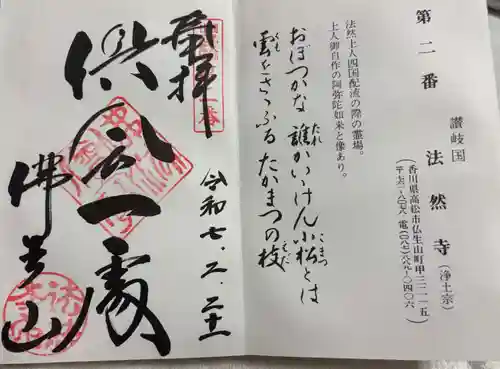 第二番
讃岐国 法然寺(浄土宗)
(香川県高松市仏生山町甲三二一五
〒七六一-八〇七八 電(〇八七)八八九-〇四〇六)
法然上人四国配流の際の霊場。
上人御自作の阿弥陀如来と像あり。
おぼつかな 誰かいいけん 小松とは
たれ
こまつ
雲をささふる たかまつの枝
くも
えだ
奉拝
令和七、二、二十一
倶会一處
佛生山